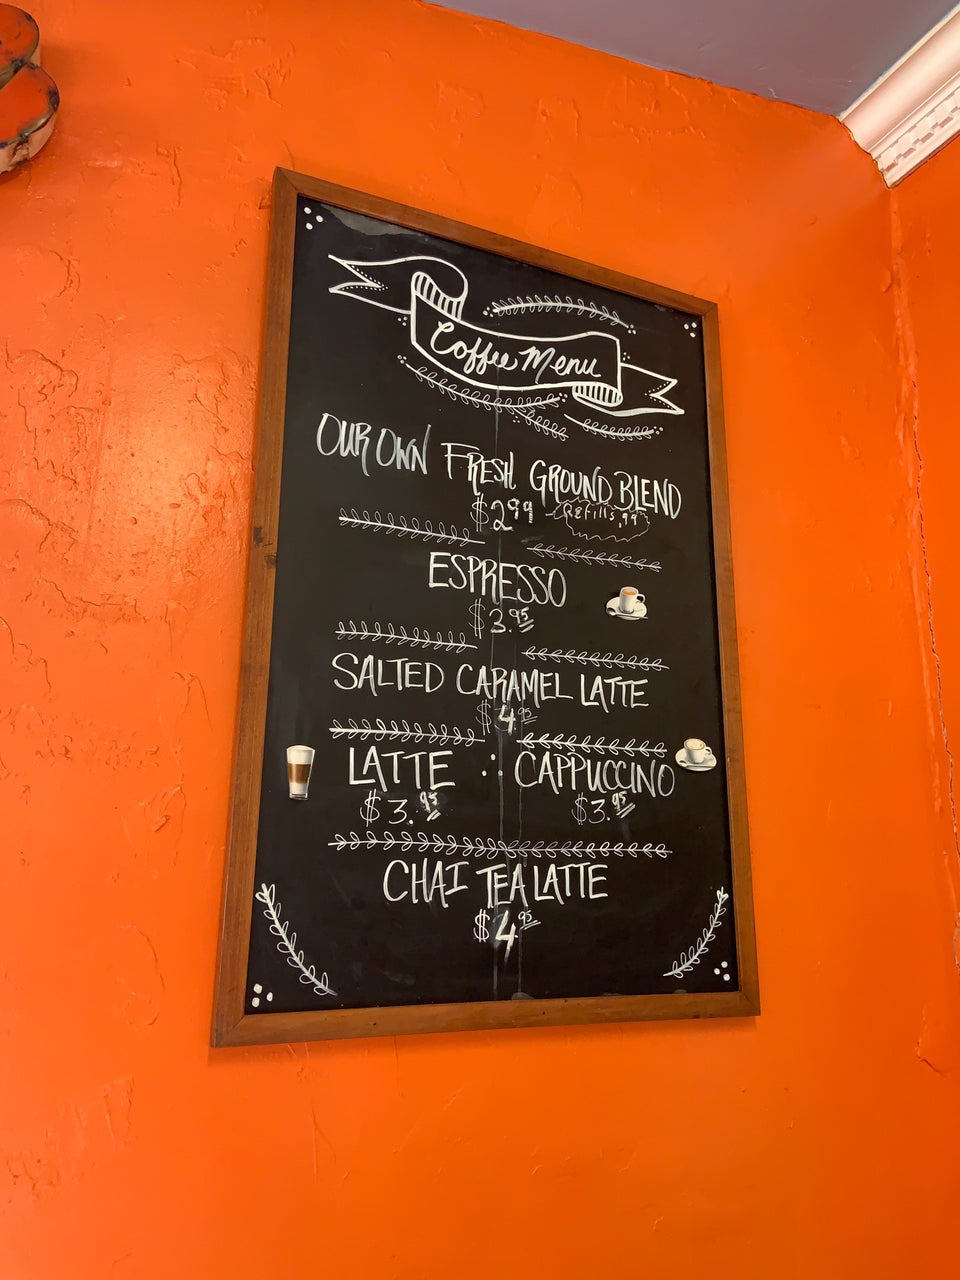 Coffee Menu
OUR OWN FRESH GROUND BLEND
$2.99 Refills .99
ESPRESSO
$3.95
SALTED CARAMEL LATTE
$4.95
LATTE CAPPUCCINO
$3.95 $3.95
CHAI TEA LATTE
$4.95